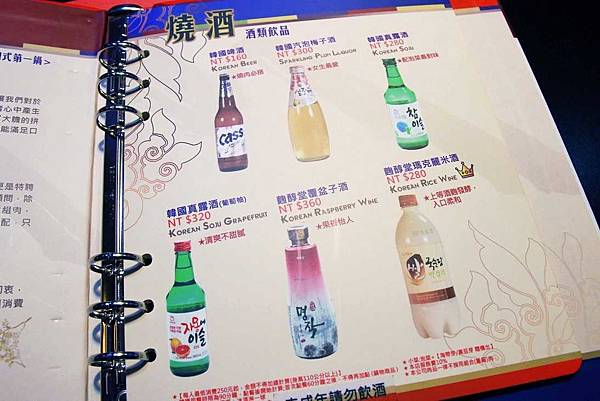 燒酒 酒類飲品
韓國啤酒
NT $160
KOREAN BEER
★燒肉必搭
韓國汽泡梅子酒
NT $300
SPARKLING PLUM LIQUOR
★女生最愛
韓國真露酒
NT $280
KOREAN SOJU
★配泡菜最對味
韓國真露酒(葡萄柚)
NT $320
KOREAN SOJU GRAPEFRUIT
★清爽不甜膩
麴醇堂覆盆子酒
NT $360
KOREAN RASPBERRY WINE
★果香怡人
麴醇堂瑪克麗米酒
NT $280
KOREAN RICE WINE
★上等酒麴發酵，
入口柔和
cass
참이슬
자몽에
이슬
명작
국순당
쌀
막걸리
式第一鍋>
我們對於
心中產生
大膽的拼
能滿足口
更是特聘
顧問，除
組肉，
配，只
消費
★本店服務費10%
未成年請勿飲酒